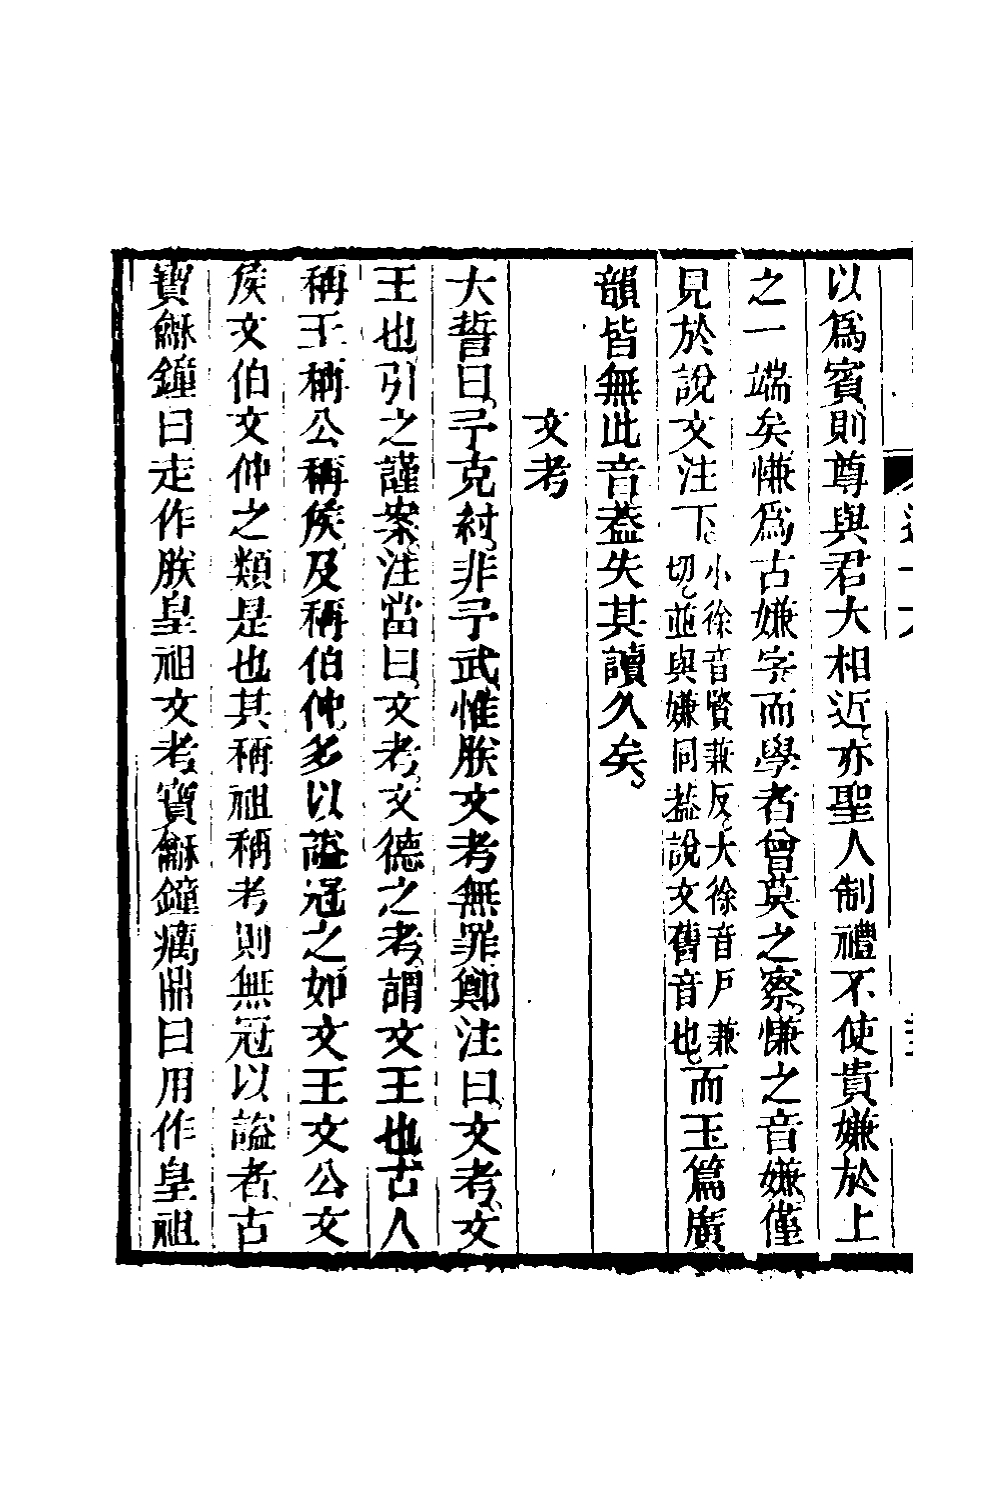 以爲賓則尊與君大相近亦聖人制禮不使貴嫌於上
之一端矣慊爲古嫌字而學者曾莫之察慊之音嫌僅
見於說文注下小徐音賢兼反大徐音戶兼切並與嫌同葢說文舊音也而玉篇廣
韻皆無此音葢失其讀久矣
文考
大誓曰予克紂非予武惟朕文考無罪鄭注曰文考文
王也引之謹案注當曰文考文德之考謂文王也古人
稱王稱公稱侯及稱伯仲多以謚冠之如文王文公文
侯文伯文仲之類是也其稱祖稱考則無冠以謚者古
寶龢鐘曰走作朕皇祖文考寶龢鐘癘鼎曰用作皇祖